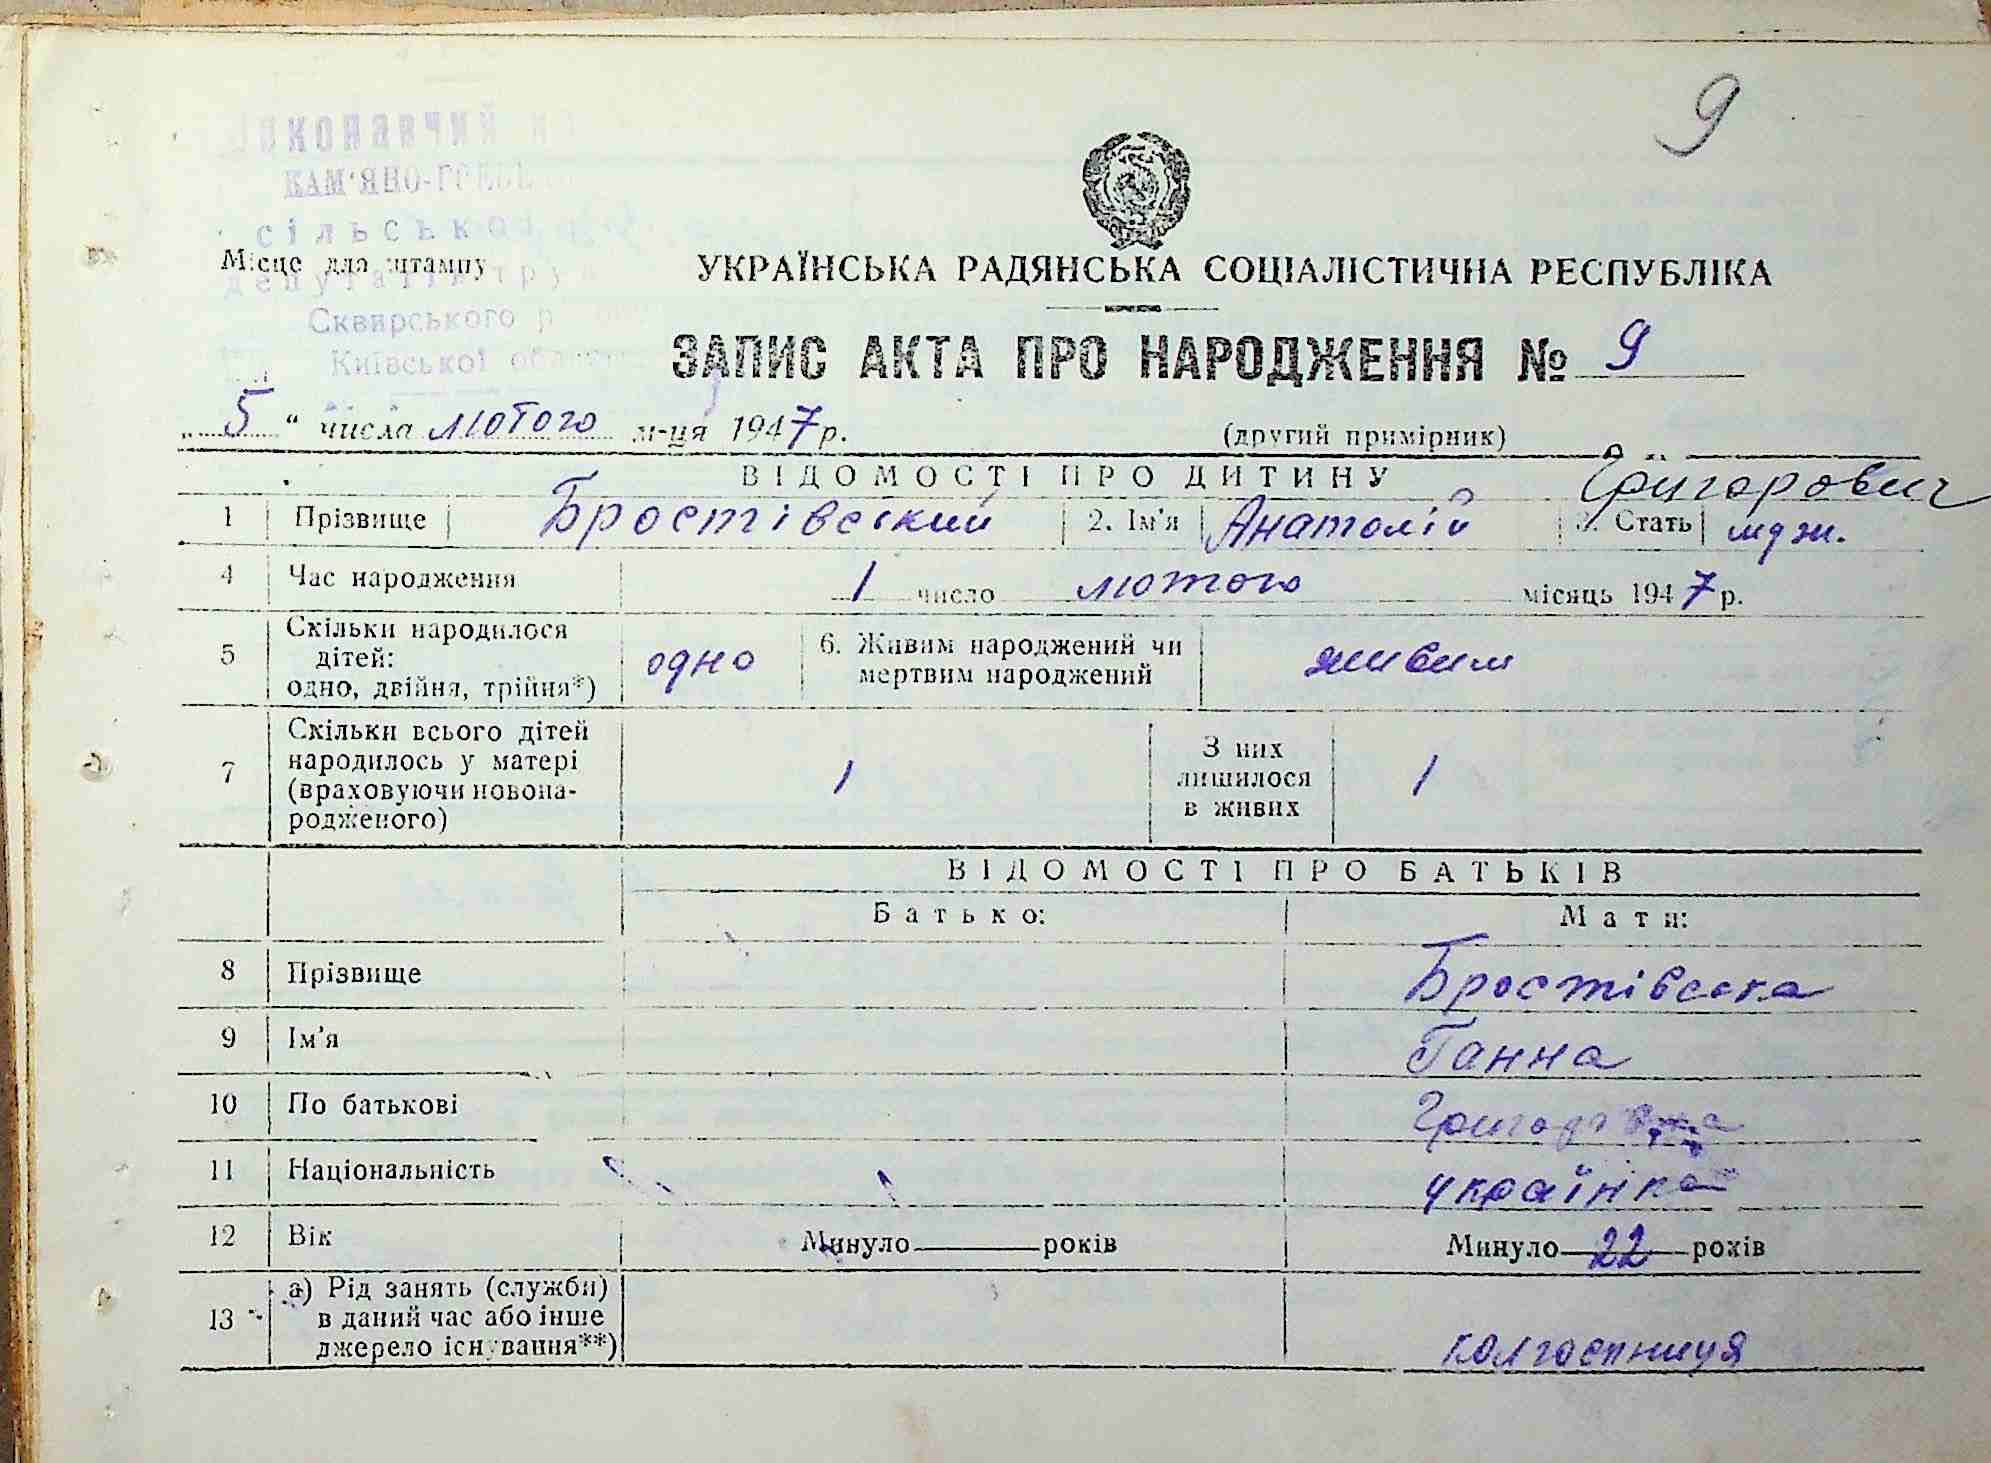 9
КАМ'ЯНО-
сільсько
Місце для штампу
Сквирського р
Київської
УКРАЇНСЬКА РАДЯНСЬКА СОЦІАЛІСТИЧНА РЕСПУБЛІКА
ЗАПИС АКТА ПРО НАРОДЖЕННЯ № 9
„ 5 “ числа лютого м-ця 1947 р.
(другий примірник)
ВІДОМОСТІ ПРО ДИТИНУ
Григорович
1 Прізвище Бростівський 2. Ім'я Анатолій 3. Стать муж.
4 Час народження 1 число лютого місяць 1947 р.
5 Скільки народилося дітей: одно, двійня, трійня*) одно 6. Живим народжений чи мертвим народжений живим
7 Скільки всього дітей народилось у матері (враховуючи новонародженого) 1 З них лишилося в живих 1
ВІДОМОСТІ ПРО БАТЬКІВ
Батько: Мати:
8 Прізвище Бростівська
9 Ім'я Ганна
10 По батькові
11 Національність українка
12 Вік Минуло років Минуло 22 років
13 а) Рід занять (служби) в даний час або інше джерело існування**) колгоспниця